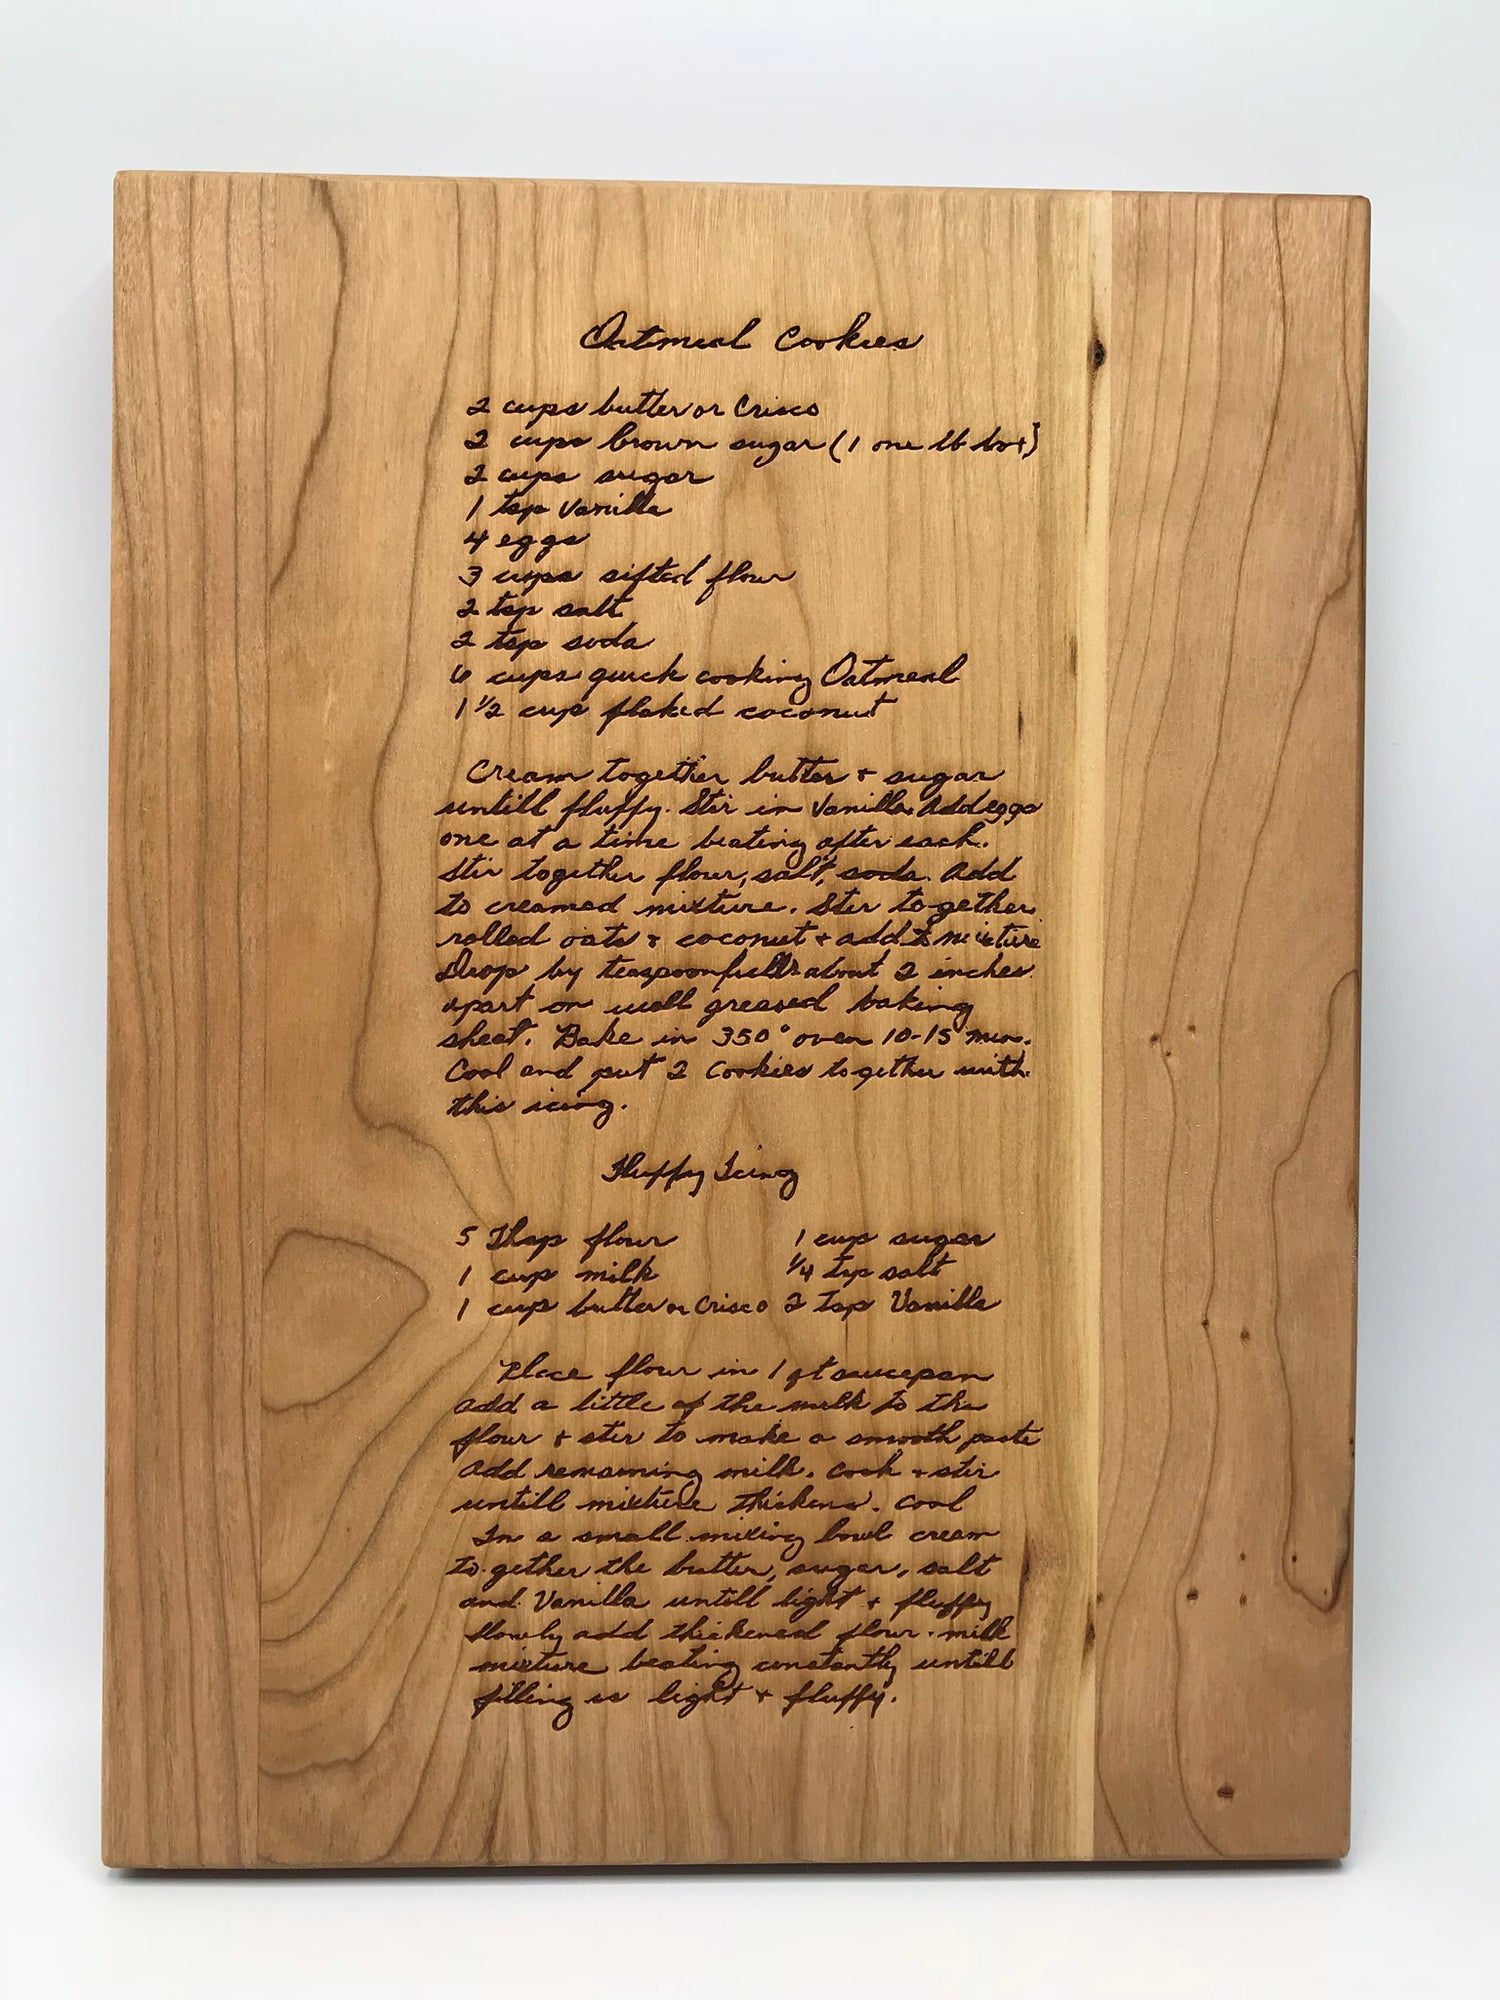 Oatmeal Cookies
2 cups butter or Crisco
2 cups brown sugar (1 one lb box)
2 cups sugar
1 tsp Vanilla
4 eggs
3 cups sifted flour
2 tsp salt
2 tsp soda
6 cups quick cooking Oatmeal
1 1/2 cup flaked coconut
Cream together butter + sugar
untill fluffy. Stir in Vanilla. Add eggs
one at a time beating after each.
Stir together flour, salt, soda. Add
to creamed mixture. Stir together
rolled oats + coconut + add to mixture
Drop by teaspoonfulls about 2 inches
apart on well greased baking
sheet. Bake in 350° oven 10-15 min.
Cool and put 2 Cookies together with
this icing.
Fluffy Icing
5 Tbsp flour 1 cup sugar
1 cup milk 1/4 tsp salt
1 cup butter or Crisco 2 tsp Vanilla
Place flour in 1 qt saucepan
add a little of the milk to the
flour + stir to make a smooth paste
Add remaining milk. Cook + stir
untill mixture thickens. Cool
In a small mixing bowl cream
together the butter, sugar, salt
and Vanilla untill light + fluffy
Slowly add thickened flour-milk
mixture beating constantly untill
filling is light + fluffy.